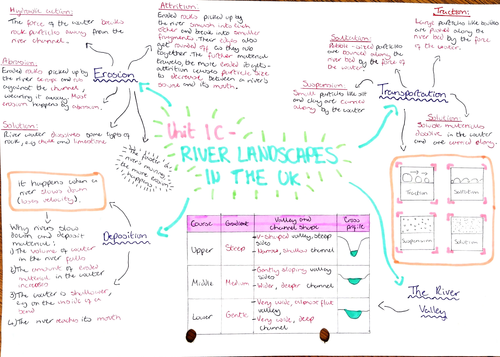 Hydraulic action:
The force of the water breaks
rock particles away from the
river channel.
Attrition:
Eroded rocks picked up by
the river smash into each
other and break into smaller
fragments. Their edges also
get rounded off as they rub
together. The further material
travels, the more eroded it gets -
attrition causes particle size
to decrease between a river's
source and its mouth.
Abrasion:
Eroded rocks picked up by
the river scrape and rub
against the channel,
wearing it away. Most
erosion happens by abrasion.
Solution:
River water dissolves some types of
rock, e.g. chalk and limestone
Erosion
The faster the
river's moving,
the more erosion
happens
Unit 1C -
RIVER LANDSCAPES
IN THE UK
Traction:
Large particles like boulders
are pushed along the
river bed by the force
of the water.
Saltation:
Pebble-sized particles
are bounced along the
river bed by the force of
the water.
Suspension:
Small particles like silt
and clay are carried
along by the water.
Transportation
Solution:
Soluble materials
dissolve in the water
and are carried along.
Traction
Saltation
Suspension
Solution
It happens when a
river slows down
(loses velocity).
Why rivers slow
down and deposit
material:
1) The volume of water
in the river falls
2) The amount of eroded
material in the water
increases
3) The water is shallower,
e.g. on the inside of a
bend
4) The river reaches its mouth
Deposition
Course
Gradient
Valley and
channel shape
Cross
profile
Upper
Steep
- V-shaped valley, steep
sides
- Narrow, shallow channel
Middle
Medium
- Gently sloping valley
sides
- Wider, deeper channel
Lower
Gentle
- Very wide, almost flat
valley
- Very wide, deep
channel
The River
Valley